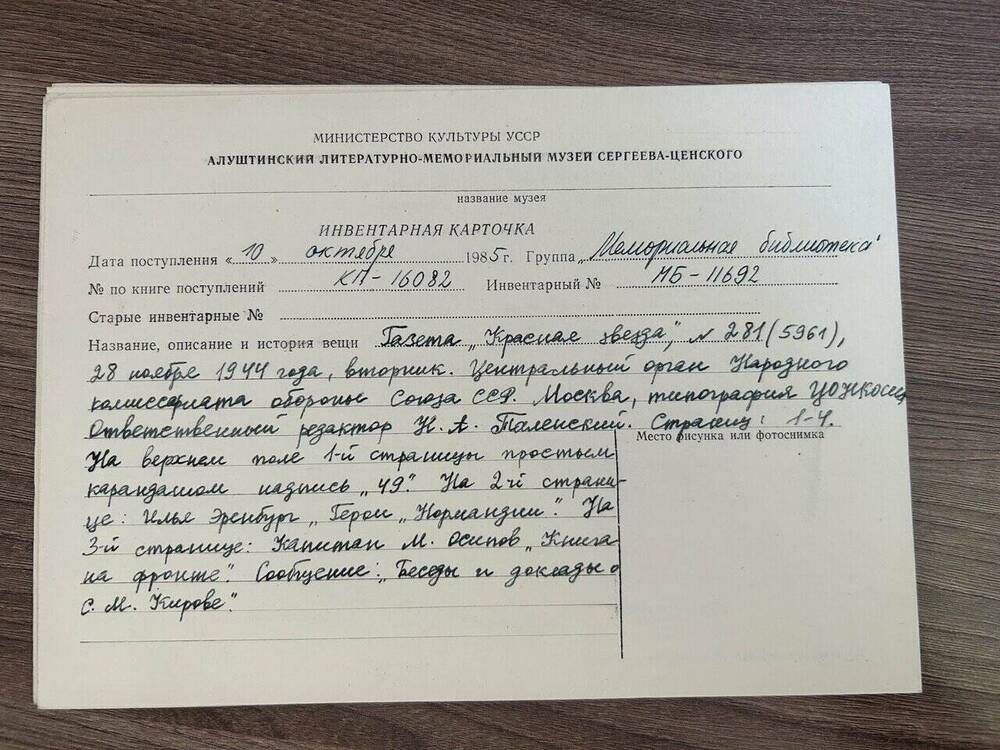 МИНИСТЕРСТВО КУЛЬТУРЫ УССР
АЛУШТИНСКИЙ ЛИТЕРАТУРНО-МЕМОРИАЛЬНЫЙ МУЗЕЙ СЕРГЕЕВА-ЦЕНСКОГО
название музея
ИНВЕНТАРНАЯ КАРТОЧКА
Дата поступления «10» октября 1985г. Группа „Мемориальная библиотека"
№ по книге поступлений КП-16082 Инвентарный № МБ-11692
Старые инвентарные №
Название, описание и история вещи Газета „Красная звезда", № 281(5961),
28 ноября 1944 года, вторник. Центральный орган Народного
комиссариата обороны Союза ССР. Москва, типография
Ответственный редактор Н. А. Таленский. Страниц: 1-4.
Место рисунка или фотоснимка
На верхнем поле 1-й страницы простым
карандашом надпись „49". На 2-й страни-
це: Илья Эренбург „Герои „Нормандии". На
3-й странице: Капитан М. Осипов „Книга
на фронте". Сообщение: „Беседы и доклады о
С. М. Кирове".